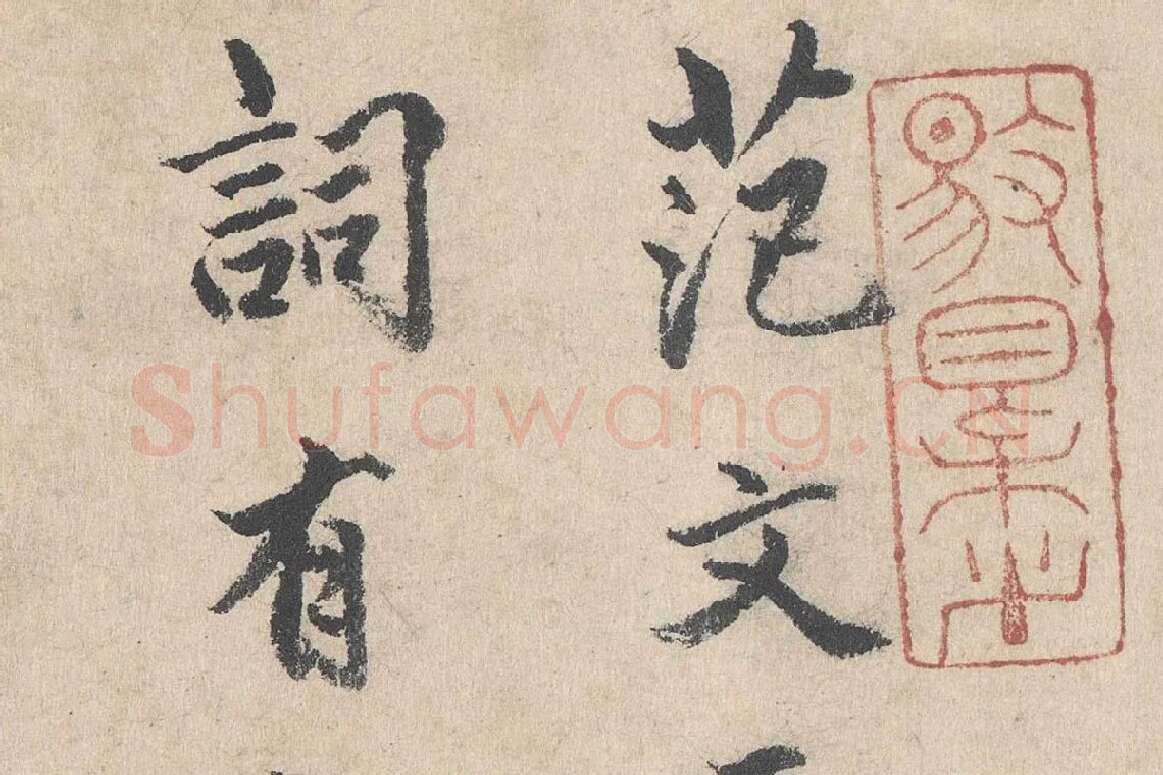 范文
詞有
Shufawang.CN